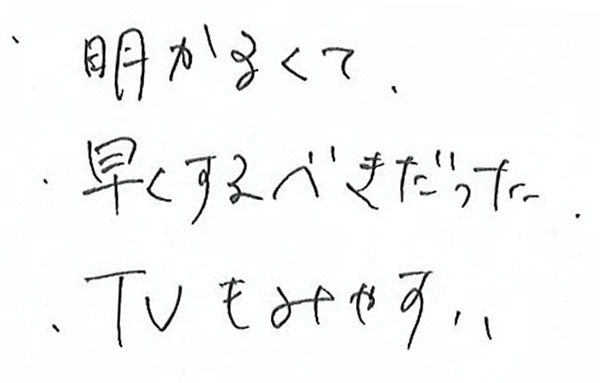 ・明かるくて、
・早くするべきだった。
・TVもみやすい